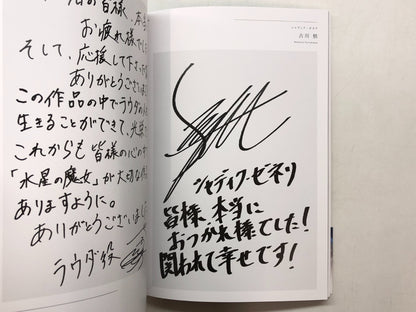 の皆様、本当
お疲れ様でし
そして、応援して下さった
ありがとうございま
この作品の中でラウダの
生きることができて、光栄
これからも皆様の心の
「水星の魔女」が大切な
ありますように。
ありがとうございまし
ラウダ役
シャディク・ゼネリ
古川 慎
シャディク・ゼネリ
皆様、本当に
おつかれ様でした!
関われて幸せです!